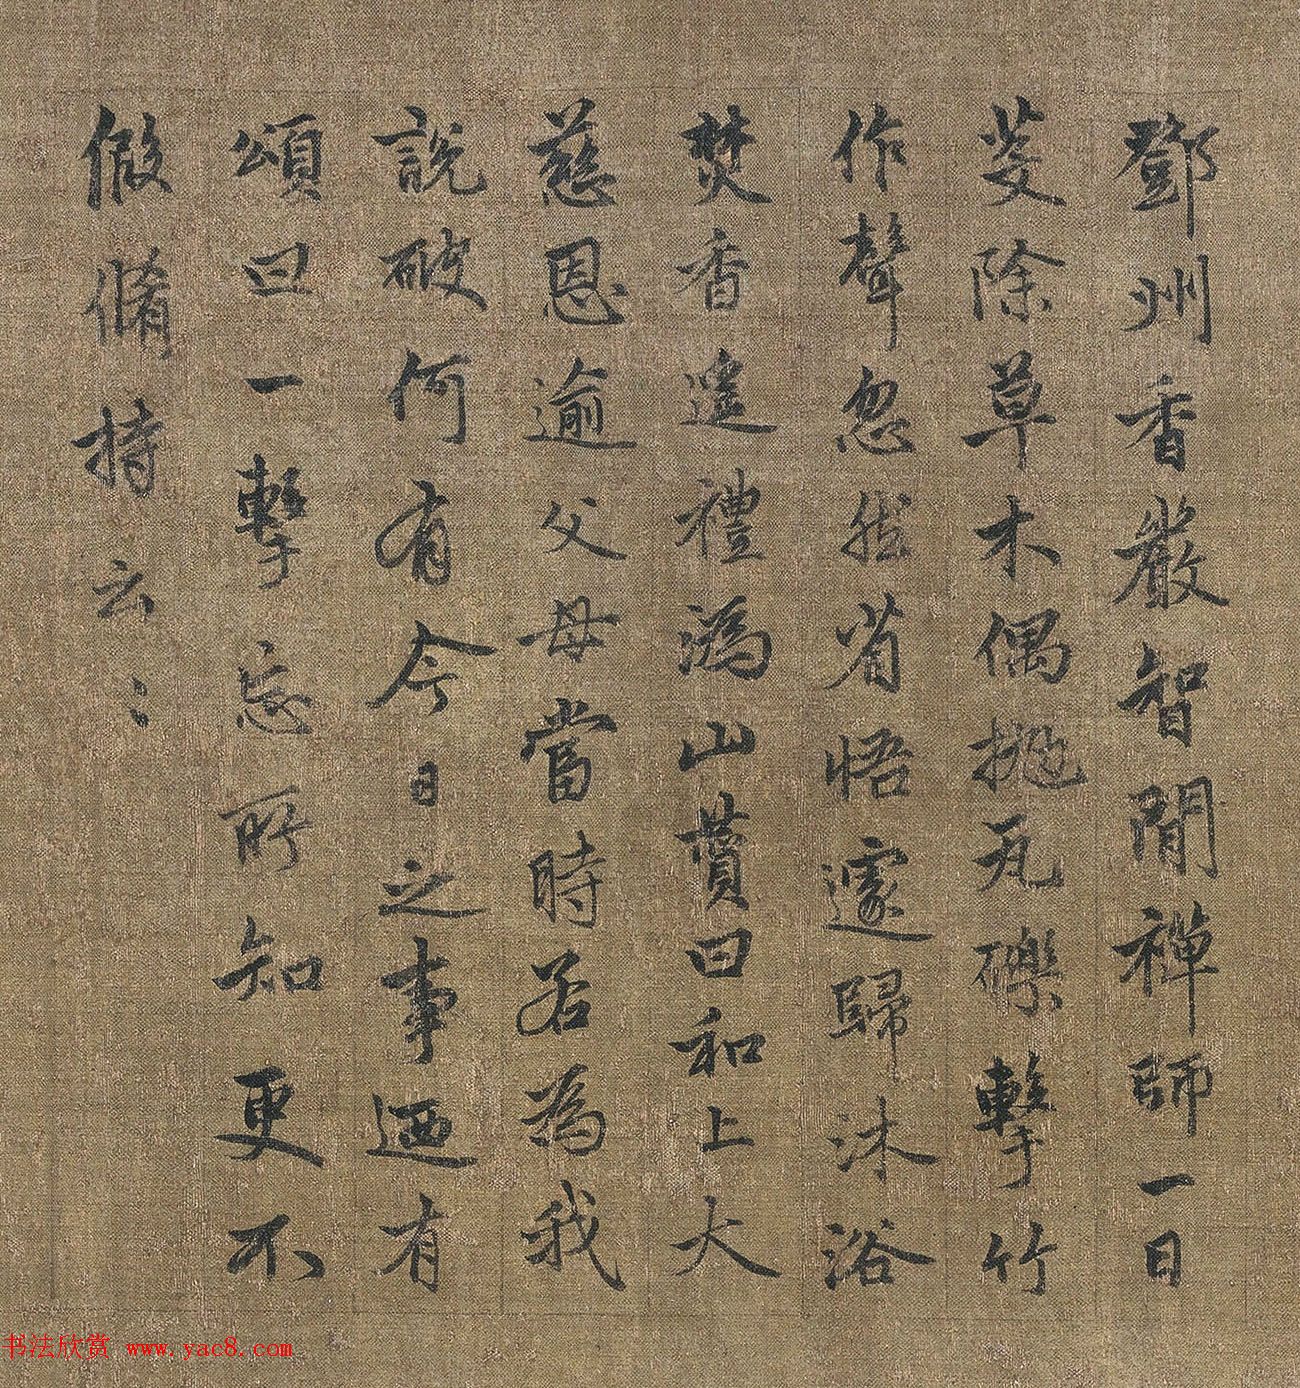 鄧州香嚴智閑禪師一日
芟除草木偶拋瓦礫擊竹
作聲忽然省悟遽歸沐浴
焚香遙禮溈山贊曰和上大
慈恩逾父母當時若為我
說破何有今日之事迺有
頌曰一擊忘所知更不
假脩持云〻
书法欣赏 www.yac8.com